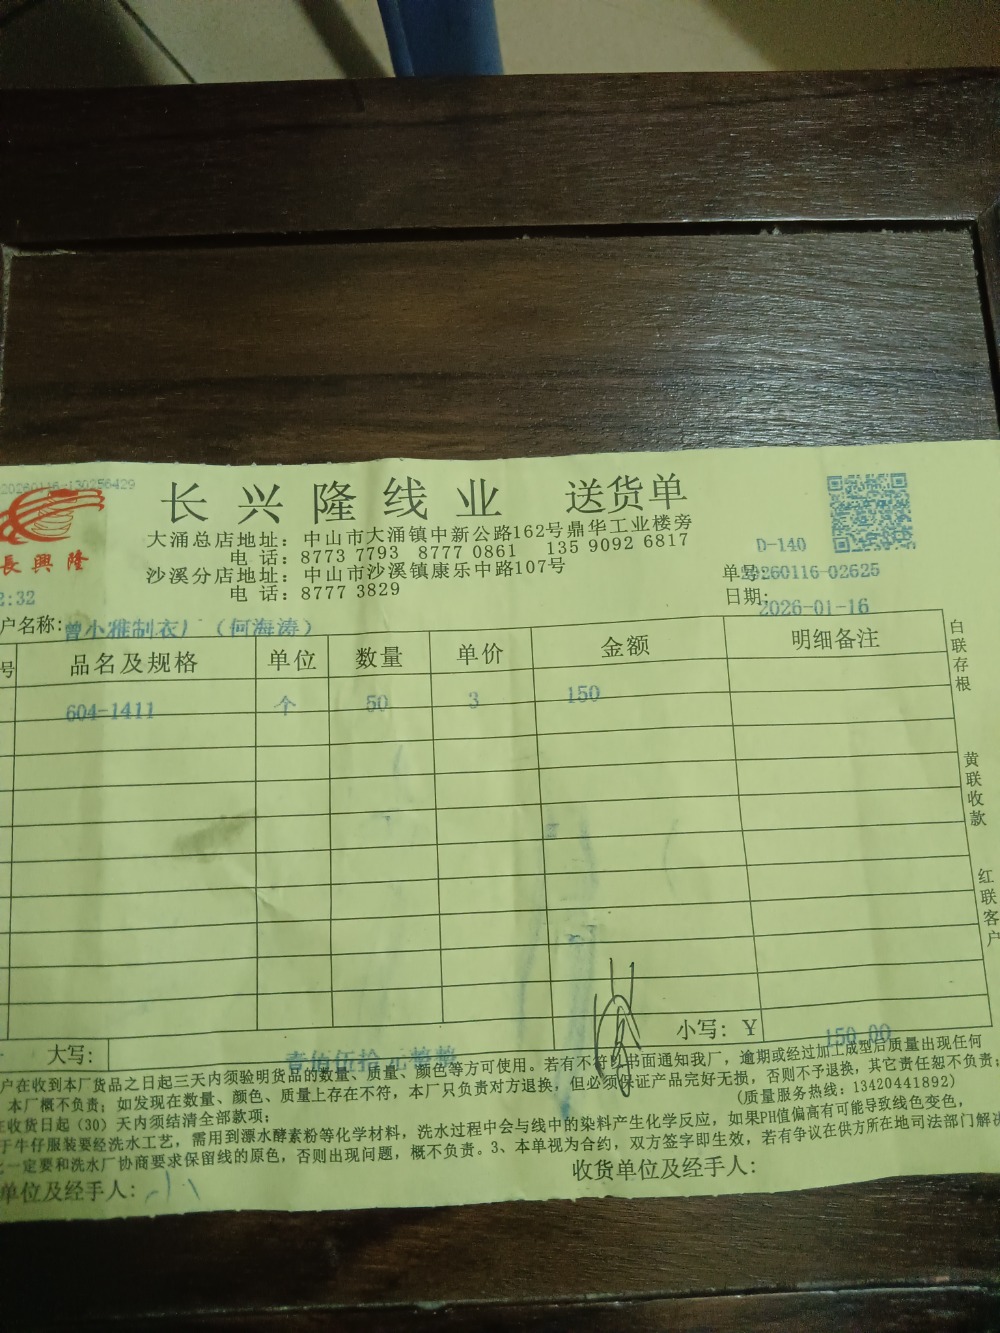 20260116-130256429
長興隆
长兴隆线业 送货单
大涌总店地址：中山市大涌镇中新公路162号鼎华工业楼旁
电 话：8773 7793 8777 0861 135 9092 6817
沙溪分店地址：中山市沙溪镇康乐中路107号
电 话：8777 3829
D-140
单号:20260116-02625
日期:2026-01-16
2:32
户名称:曾小雅制衣厂（何海涛）
号 品名及规格 单位 数量 单价 金额 明细备注
604-1411 个 50 3 150
白联存根
黄联收款
红联客户
大写: 壹佰伍拾元
小写: ¥ 150.00
户在收到本厂货品之日起三天内须验明货品的数量、质量、颜色等方可使用。若有不符 书面通知我厂，逾期或经过加工成型后质量出现任何
本厂概不负责；如发现在数量、颜色、质量上存在不符，本厂只负责对方退换，但必须保证产品完好无损，否则不予退换，其它责任恕不负责；
收货日起（30）天内须结清全部款项； (质量服务热线：13420441892)
于牛仔服装要经洗水工艺，需用到漂水酵素粉等化学材料，洗水过程中会与线中的染料产生化学反应，如果PH值偏高有可能导致线色变色，
一定要和洗水厂协商要求保留线的原色，否则出现问题，概不负责。3、本单视为合约，双方签字即生效，若有争议在供方所在地司法部门解决
单位及经手人： 收货单位及经手人：